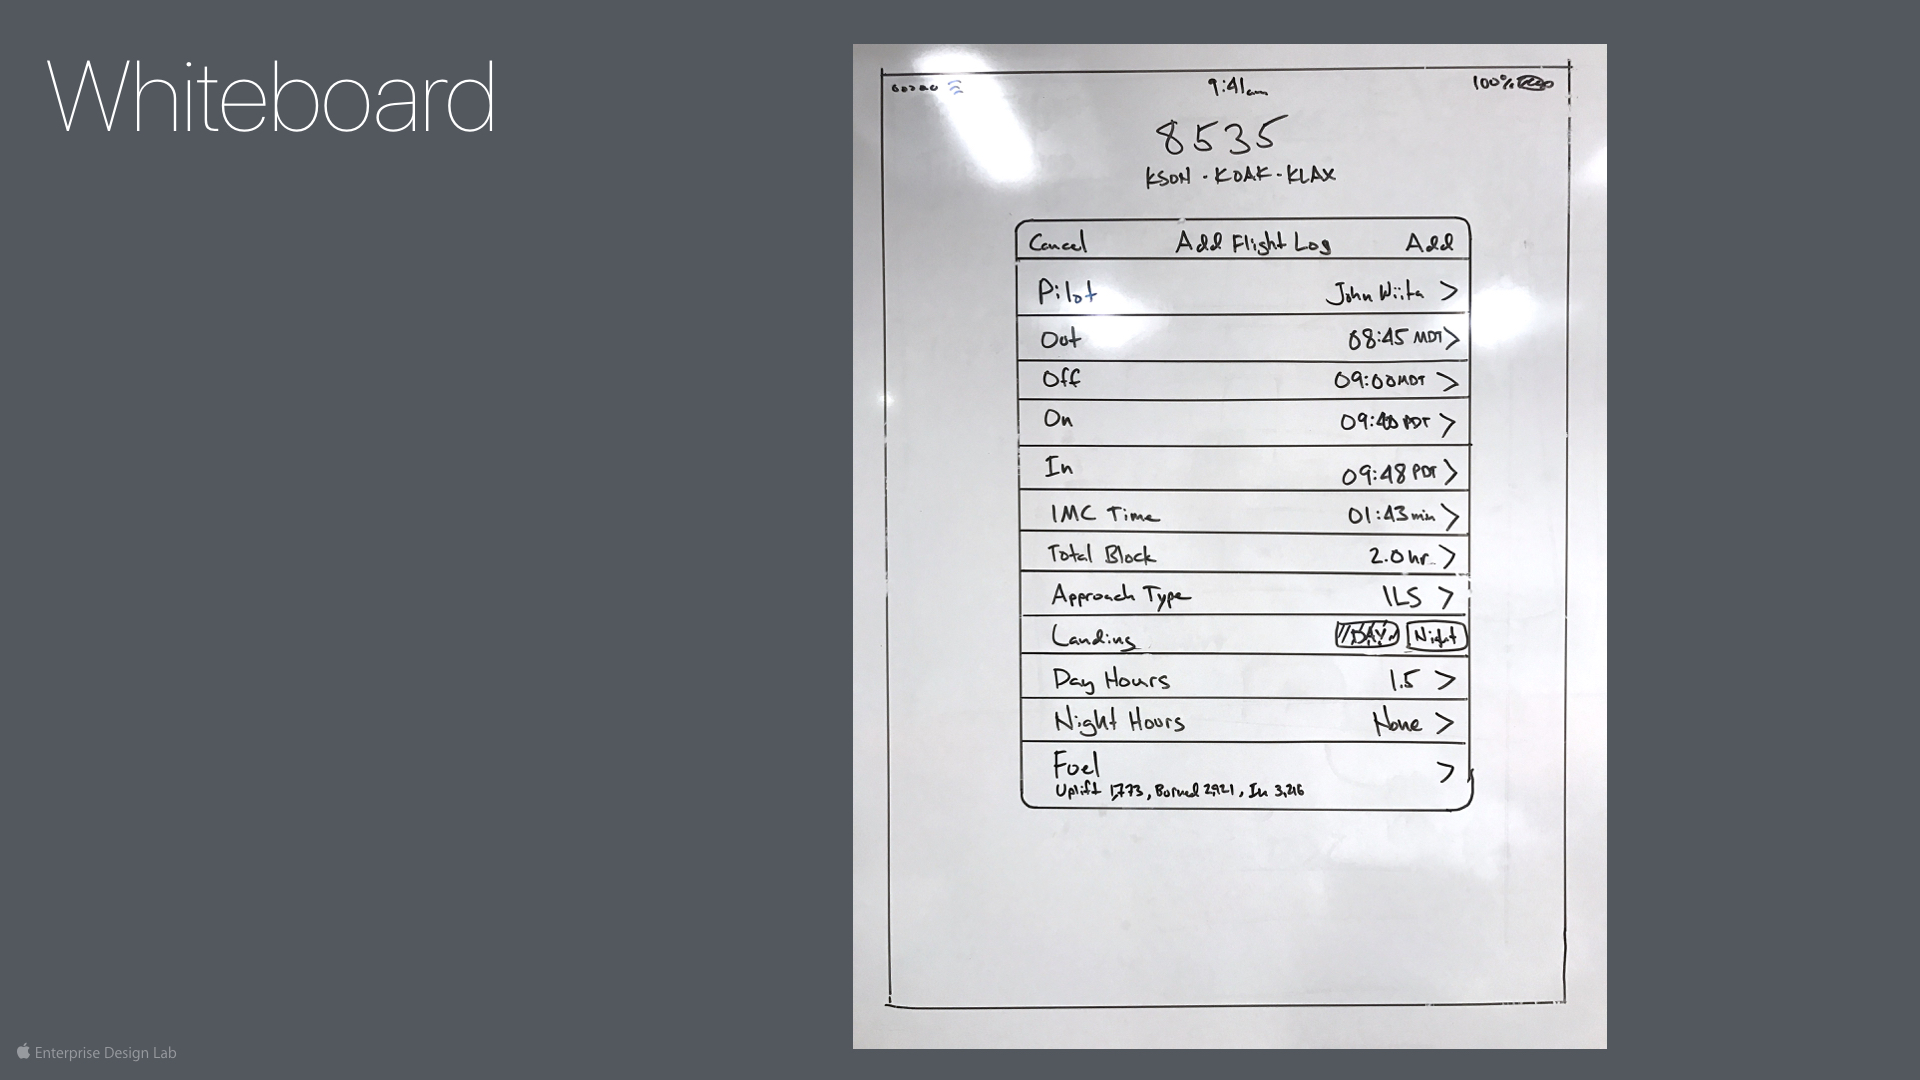 Whiteboard
9:41am 100%
8535
KSDN - KOAK - KLAX
Cancel Add Flight Log Add
Pilot John Wiita >
Out 08:45 MDT >
Off 09:00 MDT >
On 09:40 PDT >
In 09:48 PDT >
IMC Time 01:43 min >
Total Block 2.0 hr >
Approach Type ILS >
Landing DAY Night
Day Hours 1.5 >
Night Hours None >
Fuel >
Uplift 1,773, Burned 2,921, In 3,216
Enterprise Design Lab